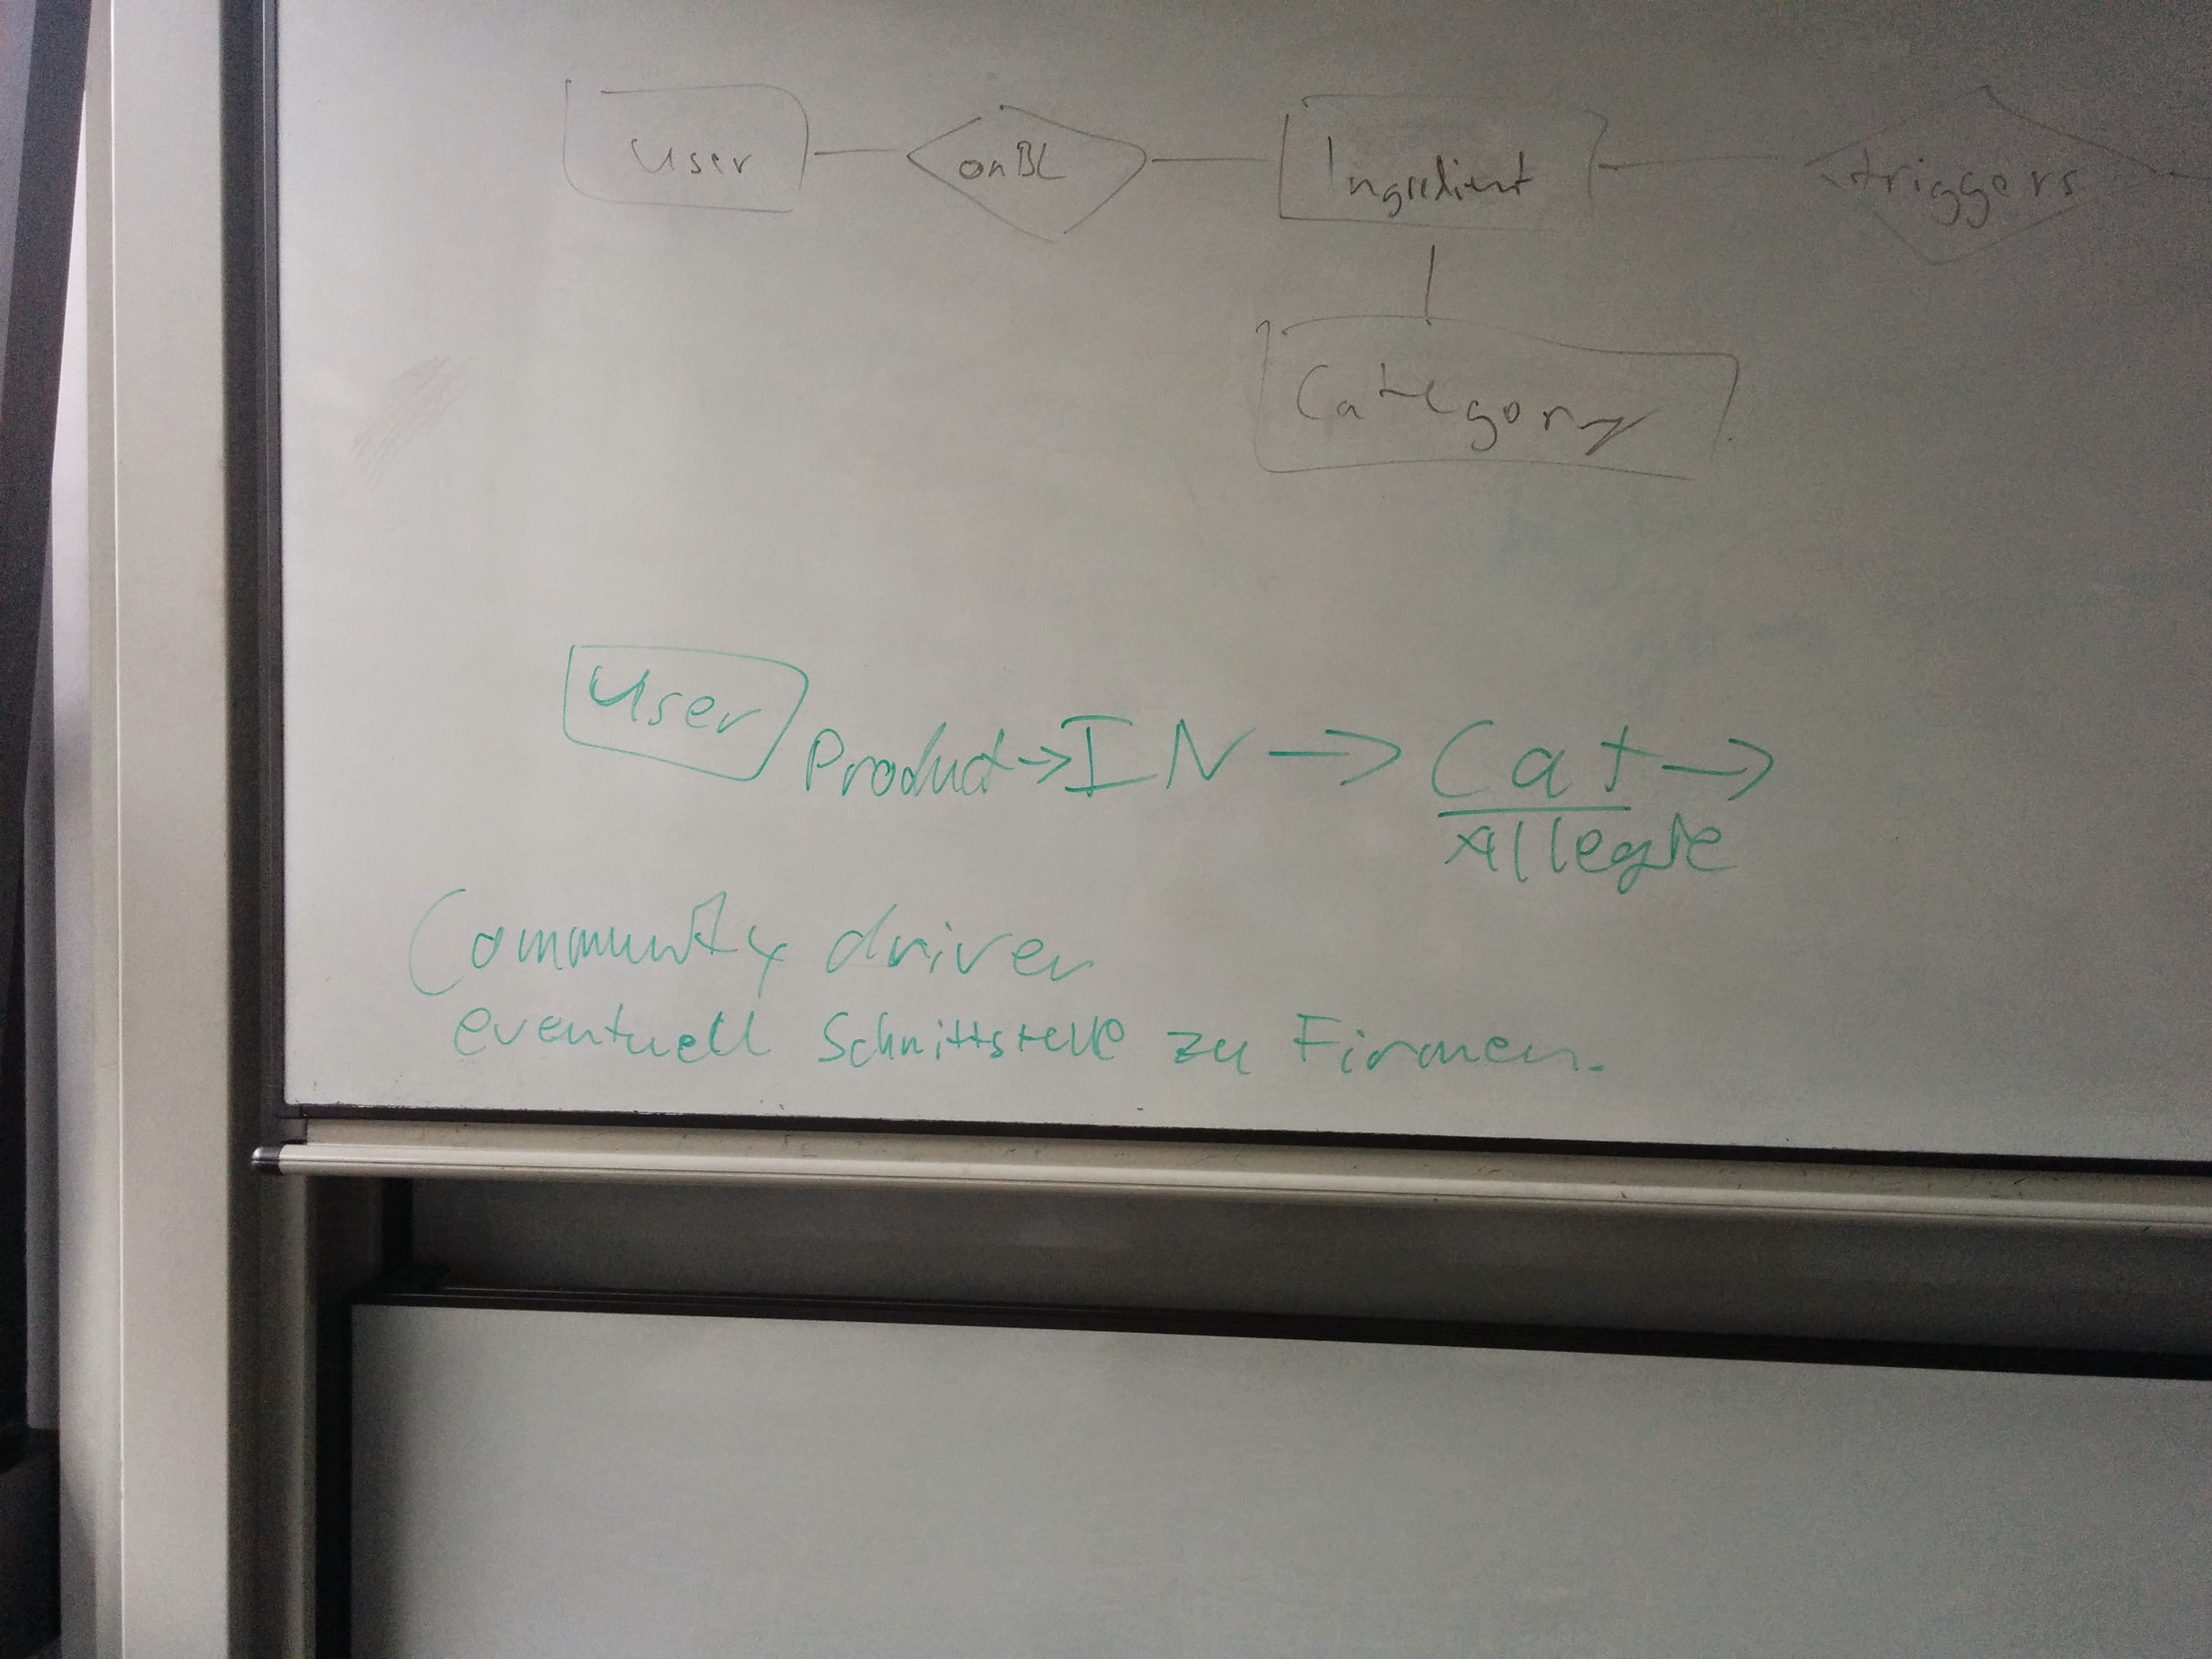 User onBL Ingredient triggers
Category
User
Product → IN → Cat →
Allergie
Community driven
eventuell Schnittstelle zu Firmen.